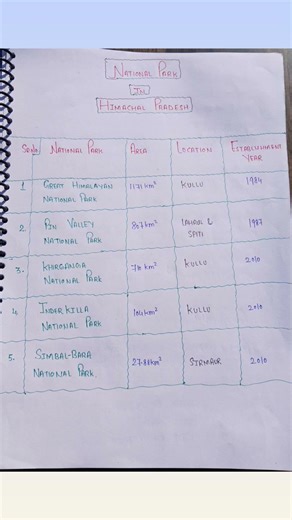 NATIONAL PARK
IN
HIMACHAL PRADESH
Sr.No. NATIONAL PARK AREA LOCATION ESTABLISHMENT YEAR
1 GREAT HIMALAYAN NATIONAL PARK 1171 km² KULLU 1984
2. PIN VALLEY NATIONAL PARK 807 km² LAHAUL & SPITI 1987
3. KHIRGANGA NATIONAL PARK 710 km² KULLU 2010
4. INDERKILLA NATIONAL PARK 104 km² KULLU 2010
5. SIMBAL-BARA NATIONAL PARK 27.88 km² SIRMAUR 2010